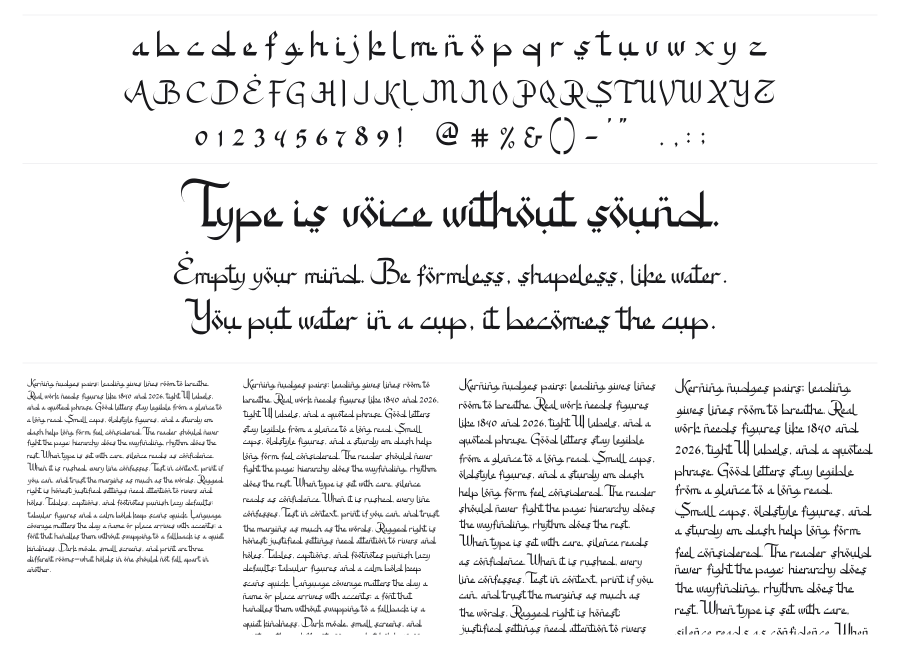 a b c d e f g h i j k l m n o p q r s t u v w x y z
A B C D E F G H I J K L M N O P Q R S T U V W X Y Z
0 1 2 3 4 5 6 7 8 9 ! @ # % & ( ) - ' " . , : ;
Type is voice without sound.
Empty your mind. Be formless, shapeless, like water.
You put water in a cup, it becomes the cup.
Kerning nudges pairs; leading gives lines room to breathe.
Real work needs figures like 1840 and 2026, tight UI labels,
and a quoted phrase. Good letters stay legible from a glance to
a long read. Small caps, oldstyle figures, and a sturdy em
dash help long form feel considered. The reader should never
fight the page: hierarchy does the wayfinding, rhythm does the
rest. When type is set with care, silence reads as confidence.
When it is rushed, every line confesses. Test in context, print if
you can, and trust the margins as much as the words. Ragged
right is honest; justified settings need attention to rivers and
holes. Tables, captions, and footnotes punish lazy defaults:
tabular figures and a calm bold keep scans quick. Language
coverage matters the day a name or place arrives with accents; a
font that handles them without swapping to a fallback is a quiet
kindness. Dark mode, small screens, and print are three
different rooms—what holds in one should not fall apart in
another.
Kerning nudges pairs; leading gives lines room to
breathe. Real work needs figures like 1840 and 2026,
tight UI labels, and a quoted phrase. Good letters
stay legible from a glance to a long read. Small
caps, oldstyle figures, and a sturdy em dash help
long form feel considered. The reader should never
fight the page: hierarchy does the wayfinding, rhythm
does the rest. When type is set with care, silence
reads as confidence. When it is rushed, every line
confesses. Test in context, print if you can, and trust
the margins as much as the words. Ragged right is
honest; justified settings need attention to rivers and
holes. Tables, captions, and footnotes punish lazy
defaults: tabular figures and a calm bold keep
scans quick. Language coverage matters the day a
name or place arrives with accents; a font that
handles them without swapping to a fallback is a
quiet kindness. Dark mode, small screens, and
Kerning nudges pairs; leading gives lines
room to breathe. Real work needs figures
like 1840 and 2026, tight UI labels, and a
quoted phrase. Good letters stay legible
from a glance to a long read. Small caps,
oldstyle figures, and a sturdy em dash
help long form feel considered. The reader
should never fight the page: hierarchy does
the wayfinding, rhythm does the rest.
When type is set with care, silence reads
as confidence. When it is rushed, every
line confesses. Test in context, print if you
can, and trust the margins as much as
the words. Ragged right is honest;
justified settings need attention to rivers
Kerning nudges pairs; leading
gives lines room to breathe. Real
work needs figures like 1840 and
2026, tight UI labels, and a quoted
phrase. Good letters stay legible
from a glance to a long read.
Small caps, oldstyle figures, and
a sturdy em dash help long form
feel considered. The reader should
never fight the page: hierarchy does
the wayfinding, rhythm does the
rest. When type is set with care,
silence reads as confidence. When